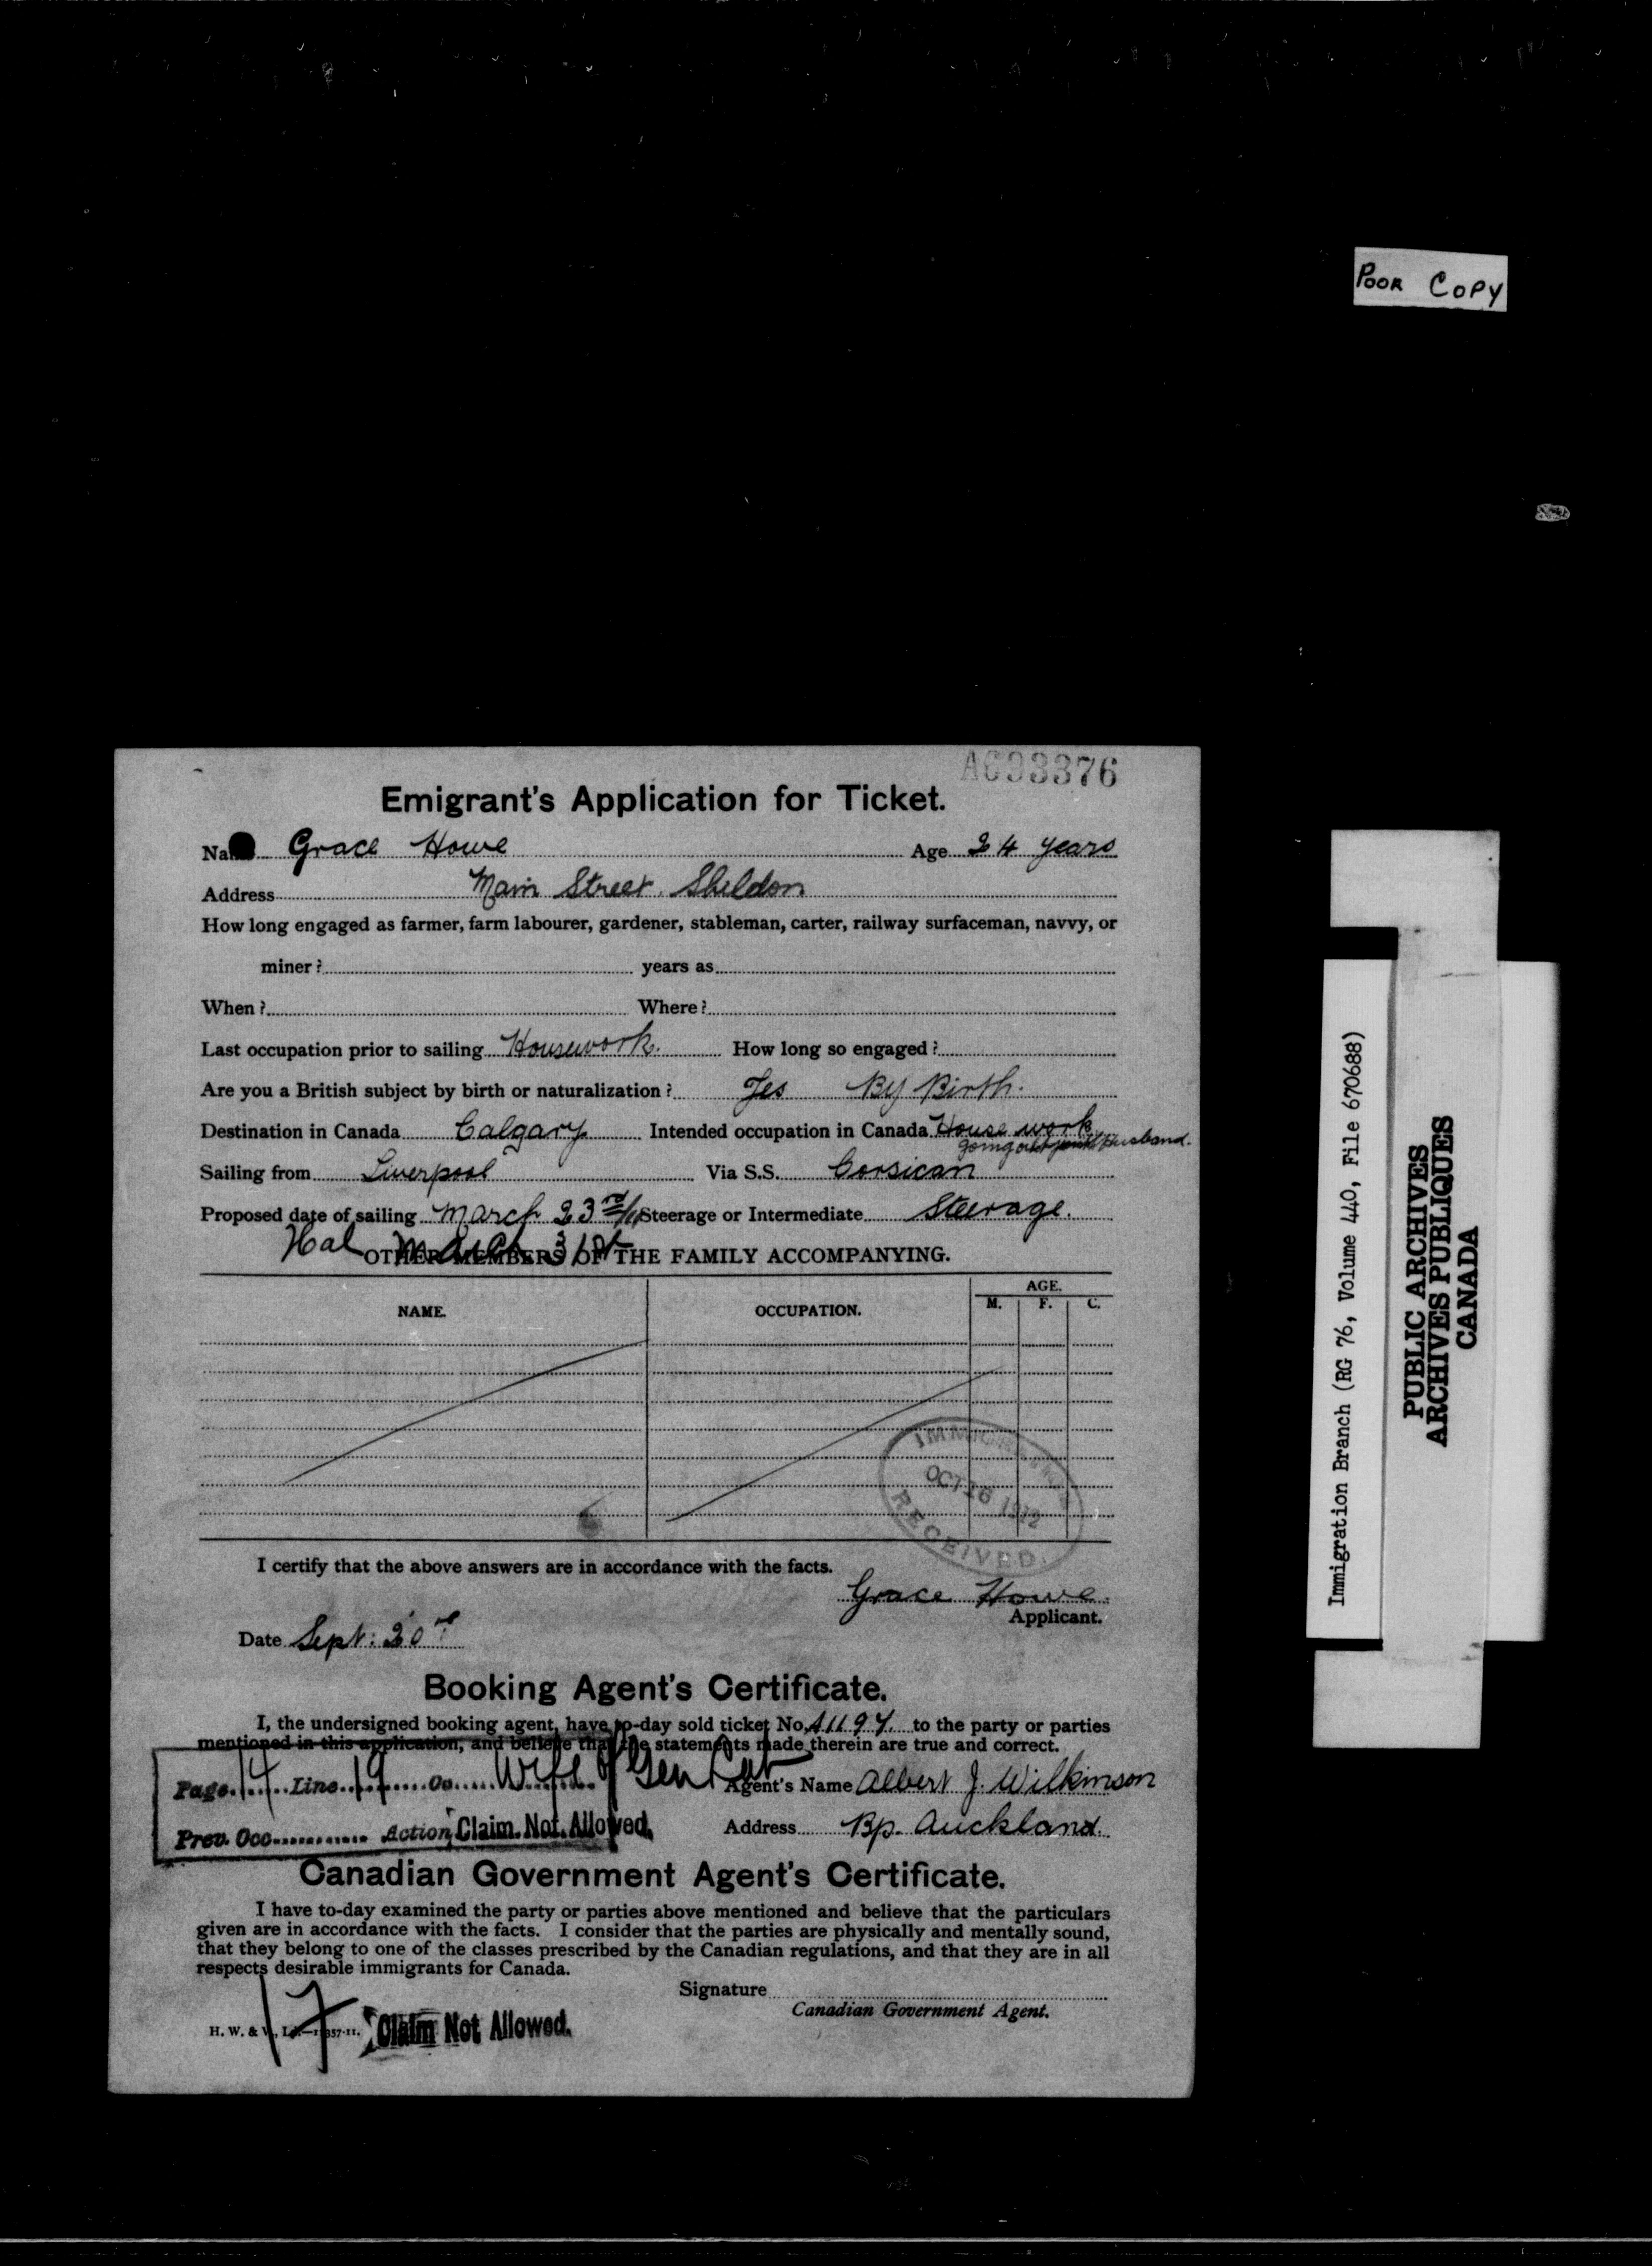 POOR COPY
AC03376
Emigrant's Application for Ticket.
Grace Howe Age 24 years
Address Main Street Sheldon
How long engaged as farmer, farm labourer, gardener, stableman, carter, railway surfaceman, navvy, or
miner? years as
When? Where?
Last occupation prior to sailing Housework. How long so engaged?
Are you a British subject by birth or naturalization? Yes By Birth.
Destination in Canada Calgary Intended occupation in Canada House work
going out Husband.
Sailing from Liverpool Via S.S. Corsican
Proposed date of sailing March 23rd Steerage or Intermediate Steerage.
Hal March 31st
OTHER MEMBERS OF THE FAMILY ACCOMPANYING.
NAME. OCCUPATION. AGE.
M. F. C.
IMMIGRATION
OCT 16 1912
RECEIVED.
I certify that the above answers are in accordance with the facts.
Grace Howe.
Applicant.
Date Sept: 20
Booking Agent's Certificate.
I, the undersigned booking agent, have to-day sold ticket No. to the party or parties
mentioned in this application, and believe that the statements made therein are true and correct.
Page 14 Line 19 Oc Wife of Gen Lab Agent's Name Albert J. Wilkinson
Prev. Occ Action Claim Not Allowed. Address Bp. Auckland.
Canadian Government Agent's Certificate.
I have to-day examined the party or parties above mentioned and believe that the particulars
given are in accordance with the facts. I consider that the parties are physically and mentally sound,
that they belong to one of the classes prescribed by the Canadian regulations, and that they are in all
respects desirable immigrants for Canada.
Signature
Canadian Government Agent.
H. W. & V., 17 Claim Not Allowed.
Immigration Branch (RG 76, Volume 440, File 670688)
PUBLIC ARCHIVES
ARCHIVES PUBLIQUES
CANADA